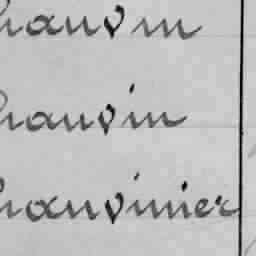 hauvin
hauvin
hauvinier